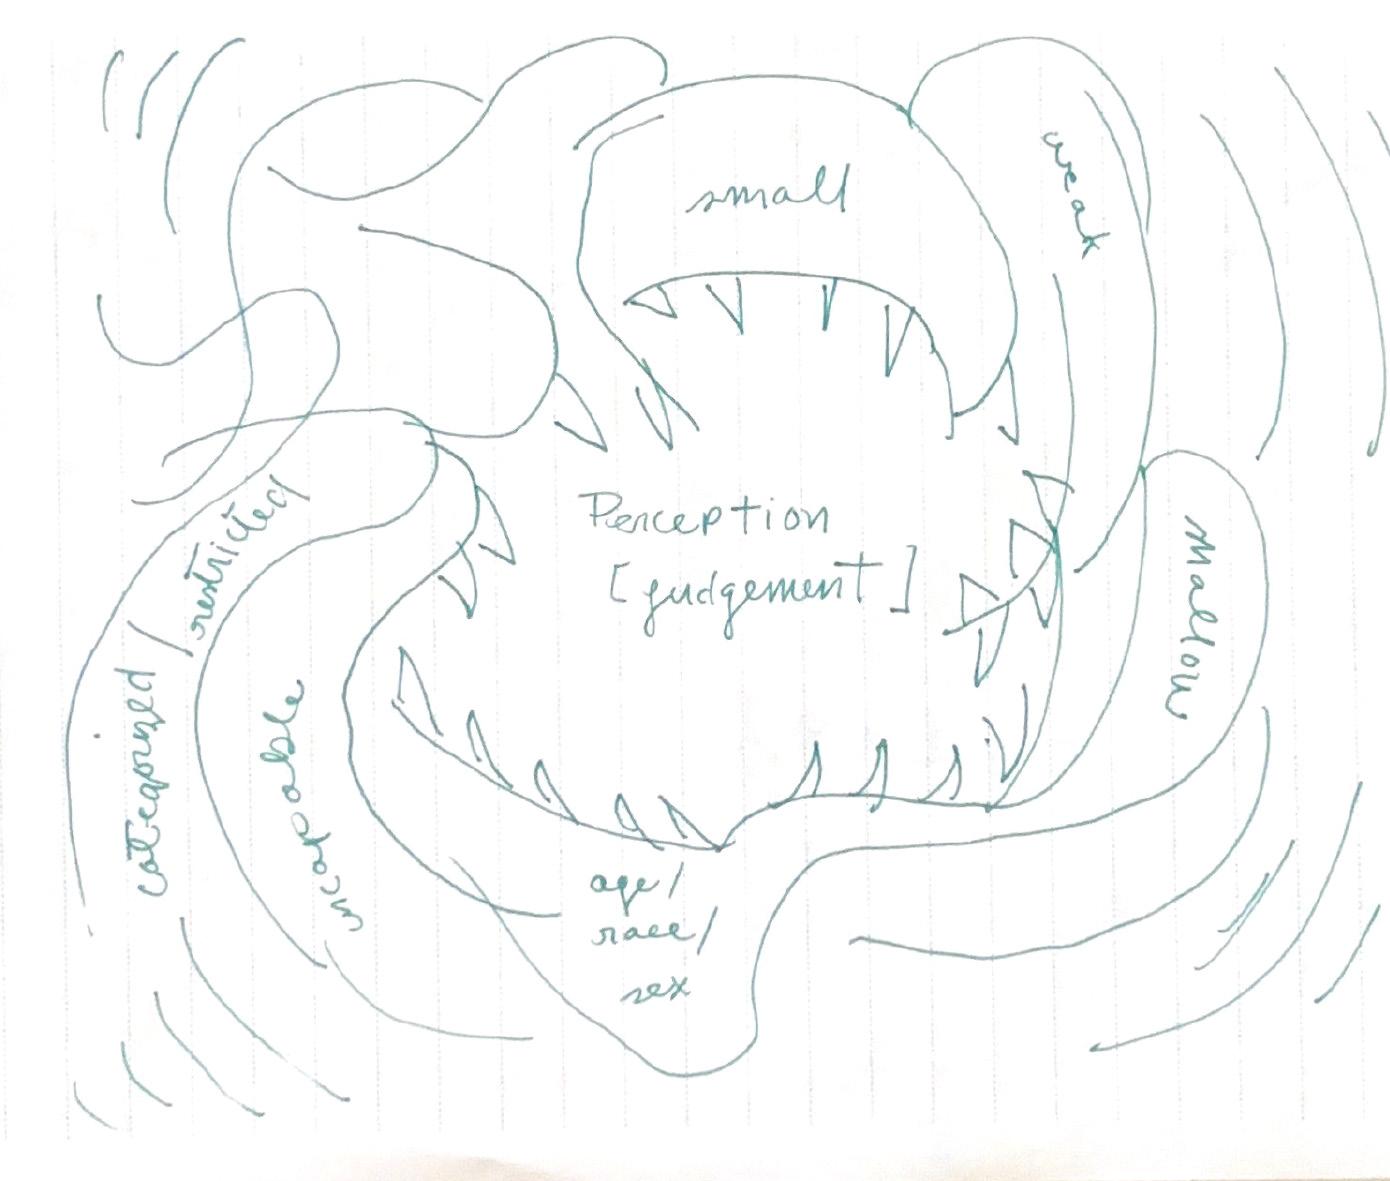 small
weak
Perception
[judgement]
shallow
categorized / restricted
incapable
age/
race/
sex